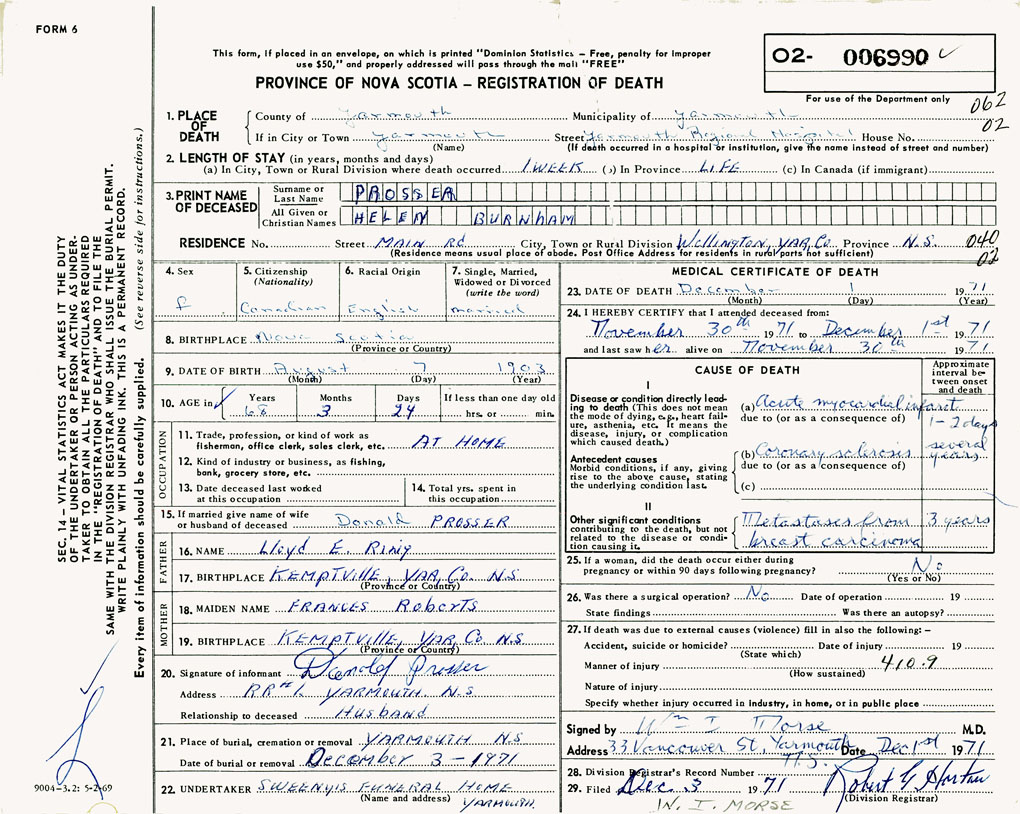 FORM 6
This form, if placed in an envelope, on which is printed "Dominion Statistics – Free, penalty for improper
use $50," and properly addressed will pass through the mail "FREE"
PROVINCE OF NOVA SCOTIA – REGISTRATION OF DEATH
02- 006990
For use of the Department only
062
02
1. PLACE OF DEATH
County of Yarmouth Municipality of Yarmouth
If in City or Town Yarmouth Street Yarmouth Regional Hospital House No.
(Name) (If death occurred in a hospital or institution, give the name instead of street and number)
2. LENGTH OF STAY (in years, months and days)
(a) In City, Town or Rural Division where death occurred 1 WEEK (b) In Province LIFE (c) In Canada (if immigrant)
3. PRINT NAME OF DECEASED
Surname or Last Name PROSSER
All Given or Christian Names HELEN BURNHAM
RESIDENCE No. Street MAIN RD City, Town or Rural Division Wellington, YAR, Co. Province N.S. 040
02
(Residence means usual place of abode. Post Office Address for residents in rural parts not sufficient)
4. Sex f
5. Citizenship (Nationality) Canadian
6. Racial Origin English
7. Single, Married, Widowed or Divorced (write the word) married
8. BIRTHPLACE Nova Scotia
(Province or Country)
9. DATE OF BIRTH August 7 1903
(Month) (Day) (Year)
10. AGE in Years 68 Months 3 Days 24 If less than one day old hrs. or min.
OCCUPATION
11. Trade, profession, or kind of work as fisherman, office clerk, sales clerk, etc. AT HOME
12. Kind of industry or business, as fishing, bank, grocery store, etc.
13. Date deceased last worked at this occupation
14. Total yrs. spent in this occupation
15. If married give name of wife or husband of deceased Donald PROSSER
FATHER
16. NAME Lloyd E. Ring
17. BIRTHPLACE KEMPTVILLE, YAR, Co. N.S
(Province or Country)
MOTHER
18. MAIDEN NAME FRANCES Roberts
19. BIRTHPLACE KEMPTVILLE, YAR, Co. N.S
(Province or Country)
20. Signature of informant Donald Prosser
Address RR#1 YARMOUTH. N.S
Relationship to deceased Husband
21. Place of burial, cremation or removal YARMOUTH N.S
Date of burial or removal December 3 – 1971
22. UNDERTAKER SWEENY'S FUNERAL HOME
(Name and address) YARMOUTH.
MEDICAL CERTIFICATE OF DEATH
23. DATE OF DEATH December 1 1971
(Month) (Day) (Year)
24. I HEREBY CERTIFY that I attended deceased from:
November 30th 1971 to December 1st 1971
and last saw her alive on November 30th 1971
CAUSE OF DEATH
Approximate interval between onset and death
I
Disease or condition directly leading to death (This does not mean the mode of dying, e.g., heart failure, asthenia, etc. It means the disease, injury, or complication which caused death.)
(a) Acute myocardial infarct
due to (or as a consequence of) 1-2 days
Antecedent causes
Morbid conditions, if any, giving rise to the above cause, stating the underlying condition last.
(b) Coronary sclerosis several years
due to (or as a consequence of)
(c)
II
Other significant conditions contributing to the death, but not related to the disease or condition causing it.
Metastases from breast carcinoma 3 years
25. If a woman, did the death occur either during pregnancy or within 90 days following pregnancy? No
(Yes or No)
26. Was there a surgical operation? No Date of operation 19
State findings Was there an autopsy?
27. If death was due to external causes (violence) fill in also the following: –
Accident, suicide or homicide? Date of injury 19
(State which)
Manner of injury 410.9
(How sustained)
Nature of injury
Specify whether injury occurred in industry, in home, or in public place
Signed by Wm I Morse M.D.
Address 33 Vancouver St, Yarmouth N.S. Date Dec 1st 1971
28. Division Registrar's Record Number
29. Filed Dec. 3 1971
(Division Registrar)
W. I. MORSE
SEC. 14 – VITAL STATISTICS ACT MAKES IT THE DUTY
OF THE UNDERTAKER OR PERSON ACTING AS UNDER-
TAKER TO OBTAIN ALL THE PARTICULARS REQUIRED
IN THE "REGISTRATION OF DEATH" AND TO FILE THE
SAME WITH THE DIVISION REGISTRAR WHO SHALL ISSUE THE BURIAL PERMIT.
WRITE PLAINLY WITH UNFADING INK. THIS IS A PERMANENT RECORD.
Every item of information should be carefully supplied. (See reverse side for instructions.)
9004-3.2: 5-2-69